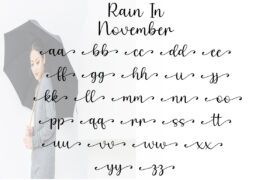 Rain In
November
aa bb cc dd ee
ff gg hh ii jj
kk ll mm nn oo
pp qq rr ss tt
uu vv ww xx
yy zz